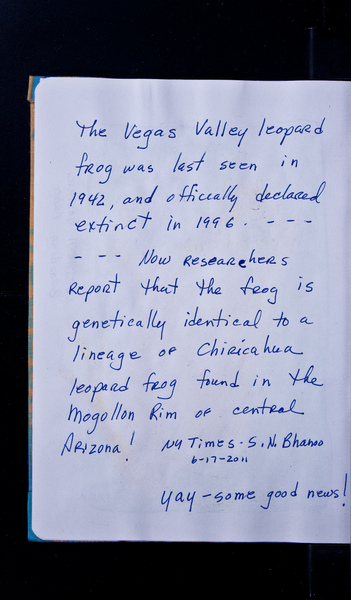 The Vegas Valley leopard
frog was last seen in
1942, and officially declared
extinct in 1996. - - -
- - - Now researchers
report that the frog is
genetically identical to a
lineage of Chiricahua
leopard frog found in the
Mogollon Rim of central
Arizona! NY Times - S. N. Bhanoo
6-17-2011
yay - some good news!